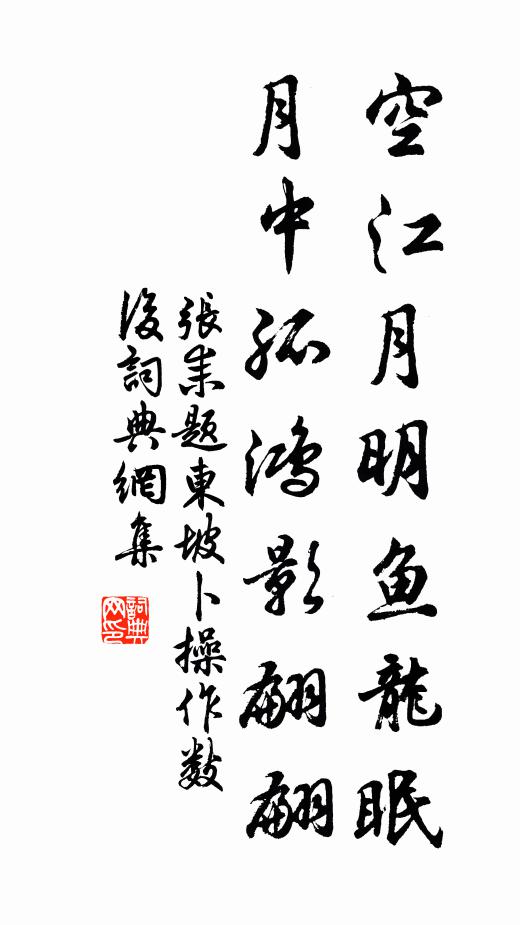 空江月明鱼龍眠
月中孤鴻影翩翩
張耒题東坡卜操作数
後詞典網集
詞典网印